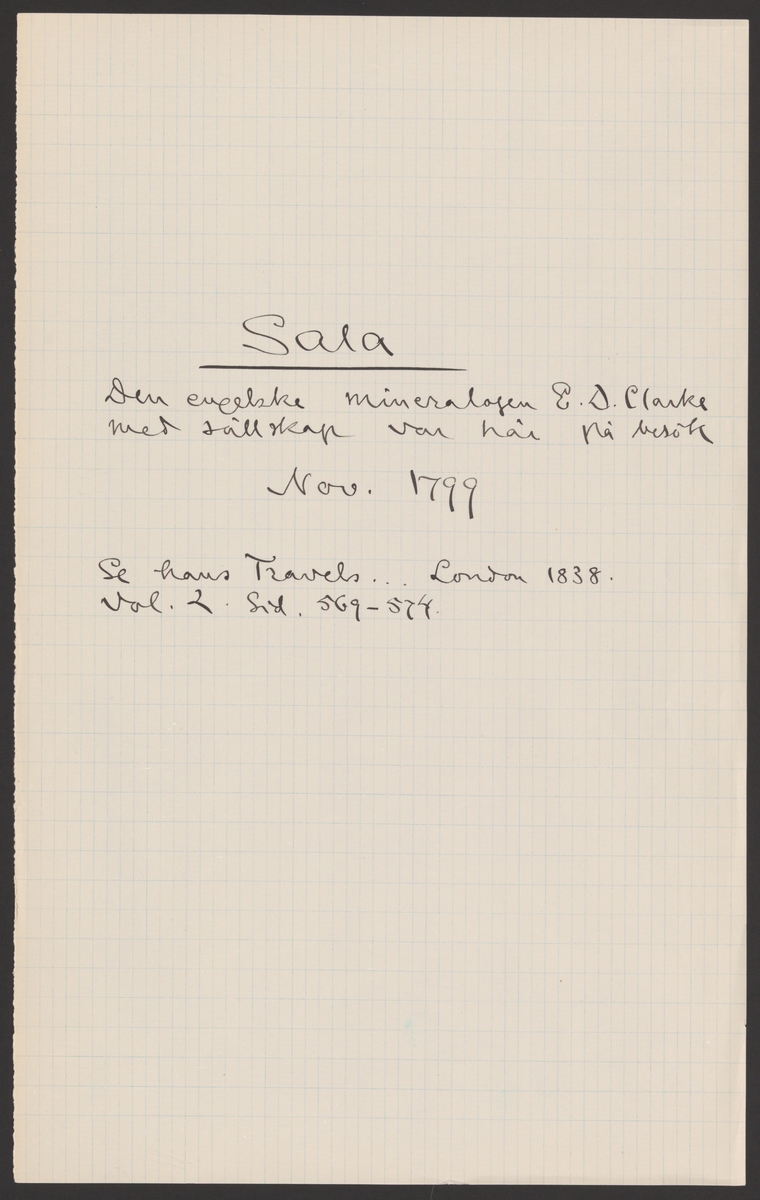 Sala
Den engelske mineralogen E. D. Clarke
med sällskap var här på besök
Nov. 1799
Se hans Travels... London 1838.
Vol. 2. Sid. 569-574.